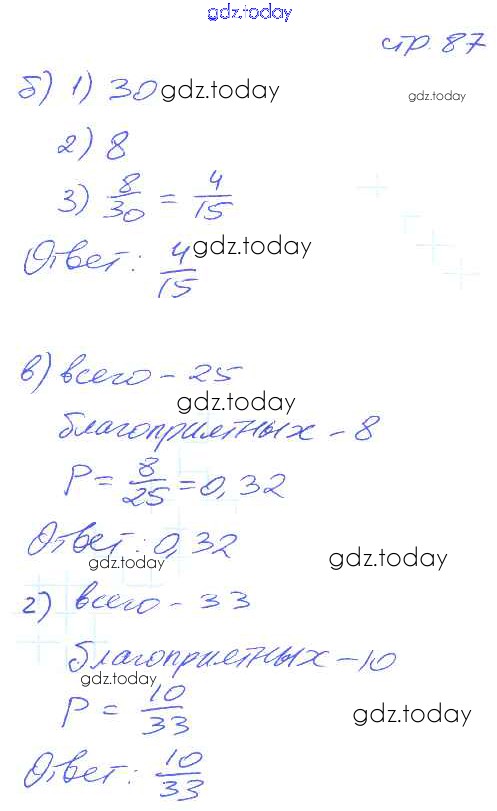 gdz.today
стр. 87
б) 1) 30 gdz.today
gdz.today
2) 8
3) 8/30 = 4/15
Ответ: 4/15 gdz.today
в) всего - 25
gdz.today
благоприятных - 8
P = 8/25 = 0,32
Ответ: 0,32
gdz.today gdz.today
г) всего - 33
благоприятных - 10
gdz.today
P = 10/33 gdz.today
Ответ: 10/33